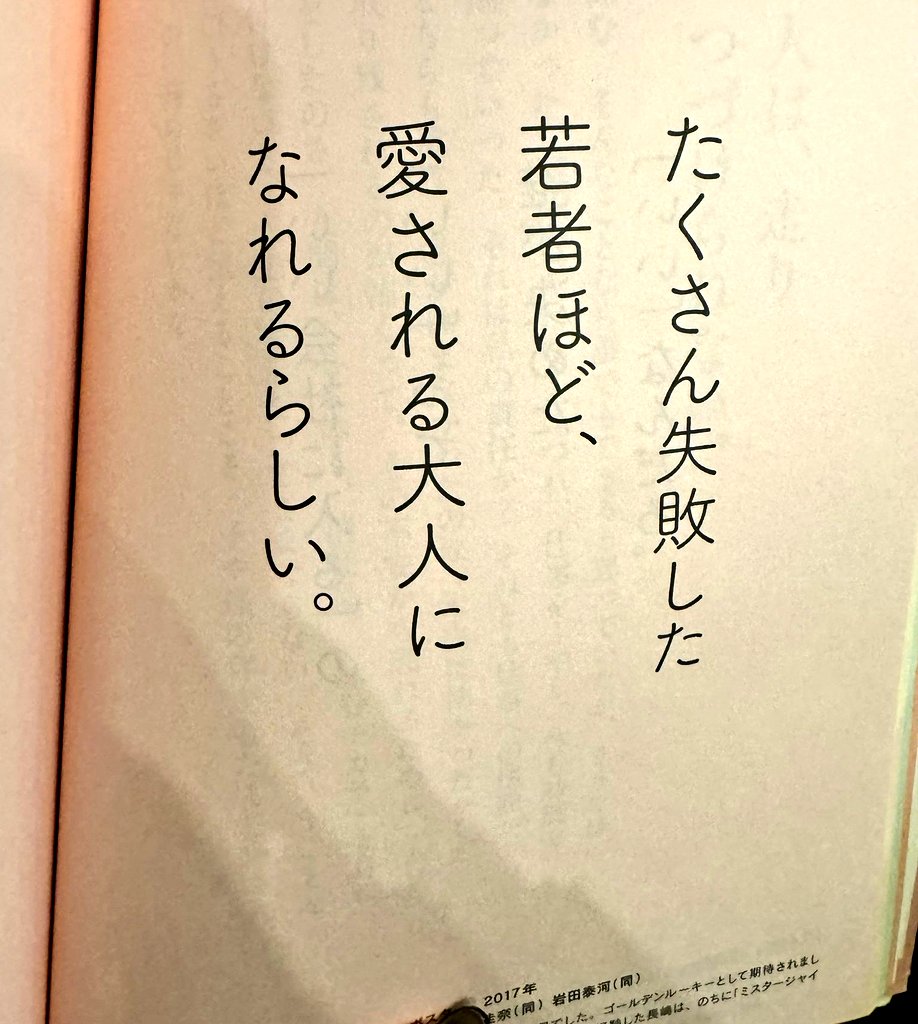 たくさん失敗した
若者ほど、
愛される大人に
なれるらしい。
2017年
岩田泰河(同)
でした。ゴールデンルーキーとして期待されまし
した長嶋は、のちに「ミスタージャイ